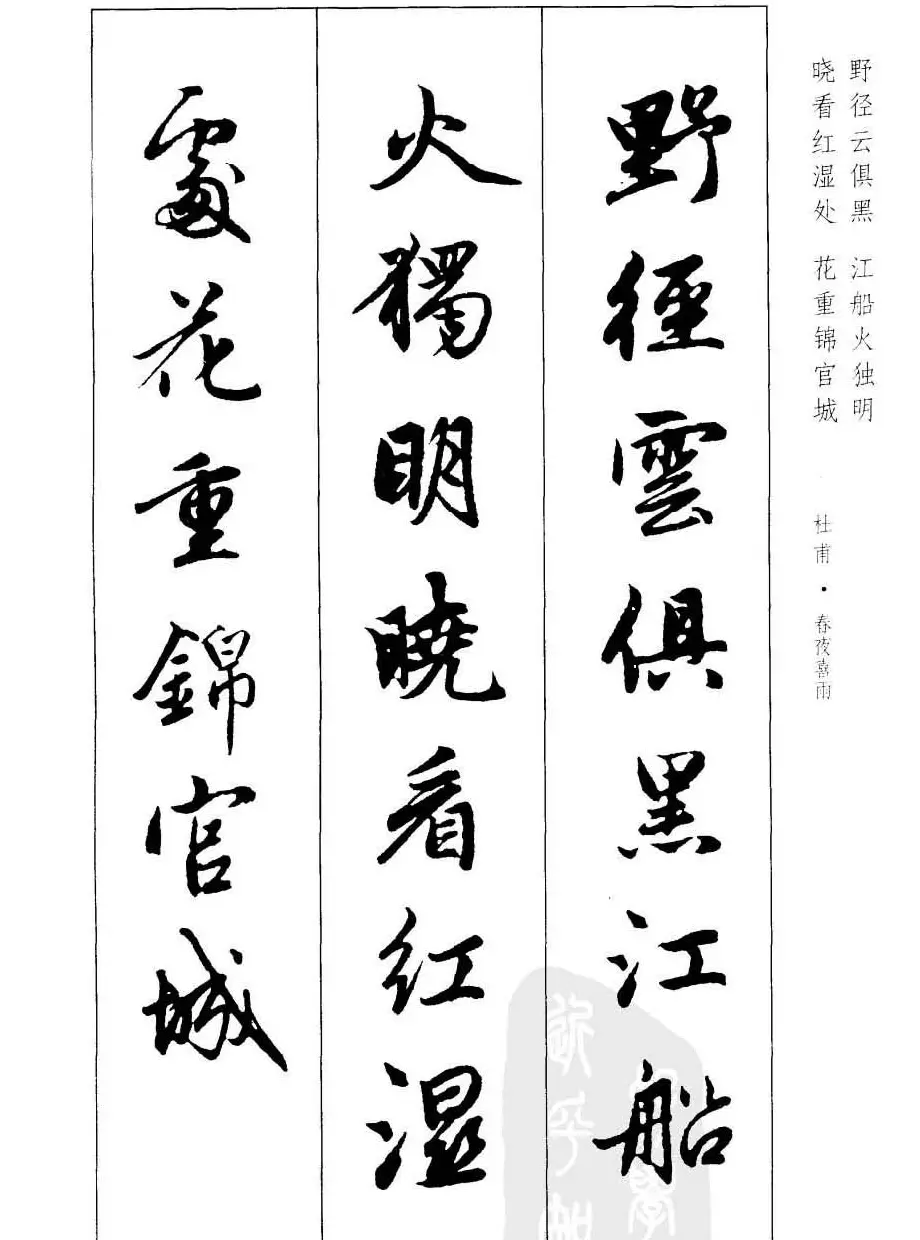 野径云俱黑 江船火独明
晓看红湿处 花重锦官城
杜甫·春夜喜雨
野徑雲俱黑江船
火獨明曉看红湿
處花重錦官城